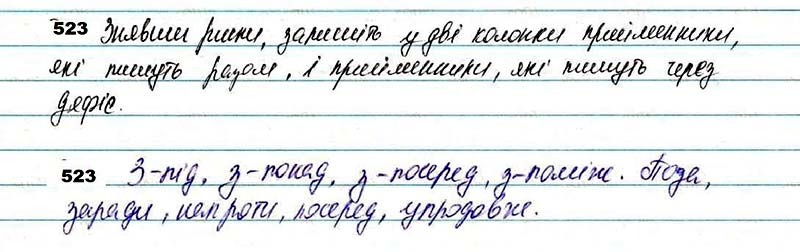 523 Знявши риски, запишіть у дві колонки прийменники,
які пишуть разом, і прийменники, які пишуть через
дефіс.
523 З-під, з-понад, з-посеред, з-поміж. Поза,
заради, напроти, посеред, упродовж.